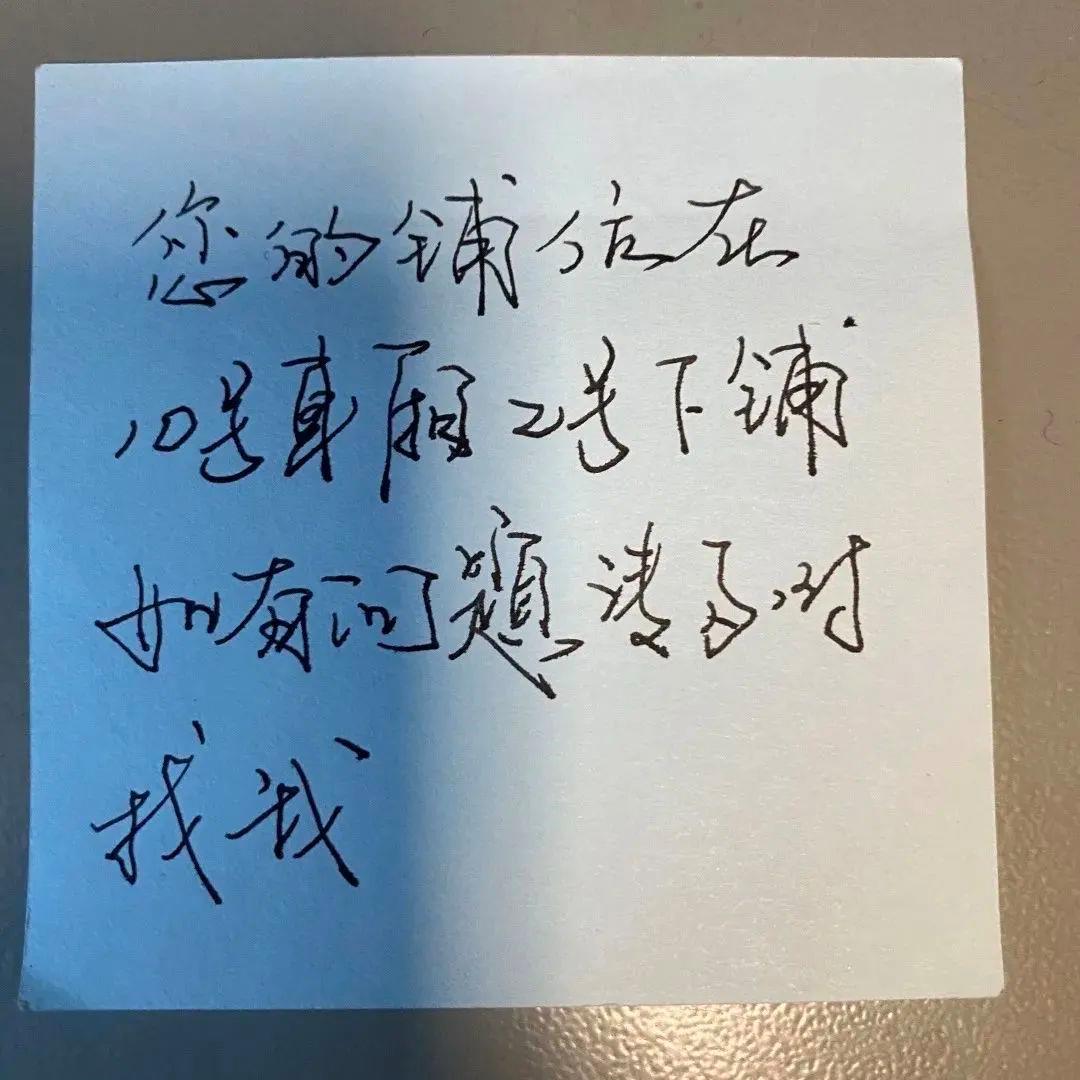 您的铺位在
10号車厢2号下铺
如有问题请及时
找我